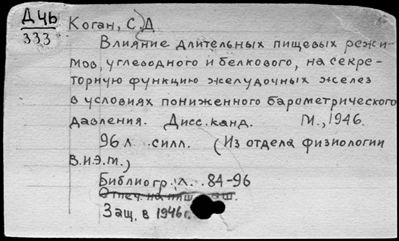 Д 46
333
Коган, С. Д
Влияние длительных пищевых режи-
мов, углеводного и белкового, на секре-
торную функцию желудочных желез
в условиях пониженного барометрического
давления. Дисс. канд. М., 1946.
96 л. с илл. (Из отдела физиологии
В.И.Э.М.)
Библиогр.: л. 84-96
Отпеч. на пиш. маш.
Защ. в 1946 г.